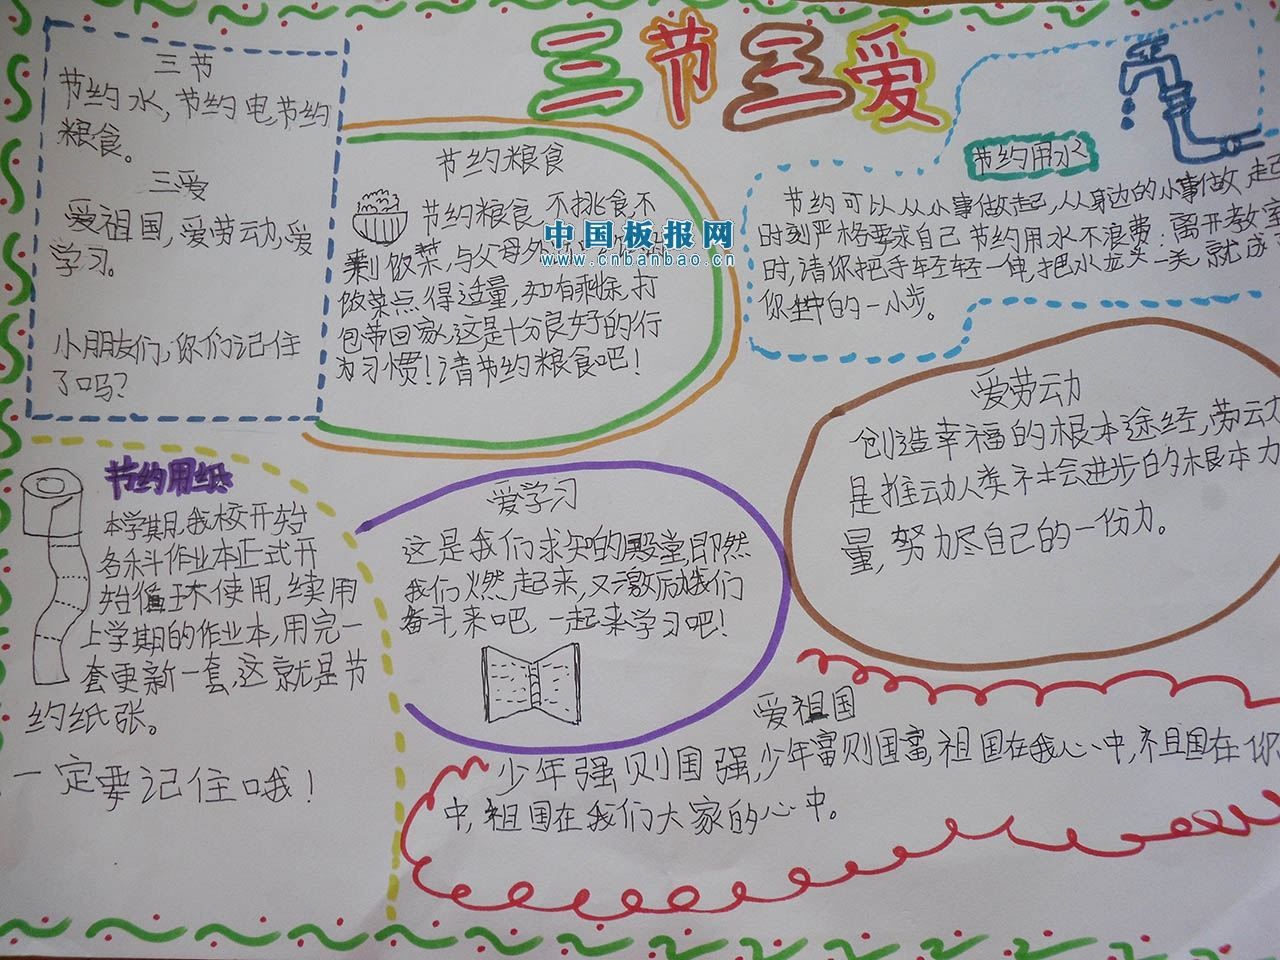 三节三爱
三节
节约水,节约电,节约
粮食。
三爱
爱祖国,爱劳动,爱
学习。
小朋友们,你们记住
了吗?
节约粮食
节约粮食,不挑食,不
剩饭菜,与父母外
饭菜点得适量,如有剩余,打
包带回家,这是十分良好的行
为习惯!请节约粮食吧!
中国板报网
www.cnbanbao.cn
节约用水
节约可以从小事做起,从身边的小事做起
时刻严格要求自己节约用水不浪费.离开教室
时,请你把手轻轻一伸,把水龙头一关,就成
你 中的一小步。
爱劳动
创造幸福的根本途经,劳动
是推动人类社会进步的根本力
量,努力尽自己的一份力。
节约用纸
本学期,我校开始
各科作业本正式开
始循环使用,续用
上学期的作业本,用完一
套更新一套,这就是节
约纸张。
一定要记住哦!
爱学习
这是我们求知的殿堂,即然
我们燃起来,又激励我们
奋斗,来吧,一起来学习吧!
爱祖国
少年强则国强,少年富则国富,祖国在我心中,祖国在你
中,祖国在我们大家的心中。